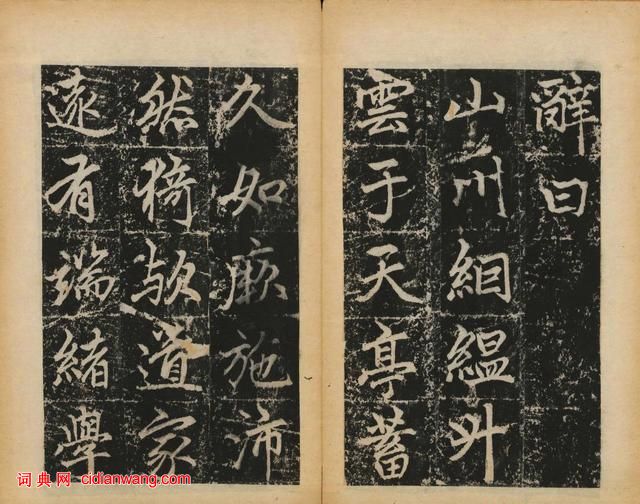 辭曰
山川絪縕升
雲于天亭蓄
久如厥施沛
然猗歟道家
遠有端緒學
词典网 cidianwang.com